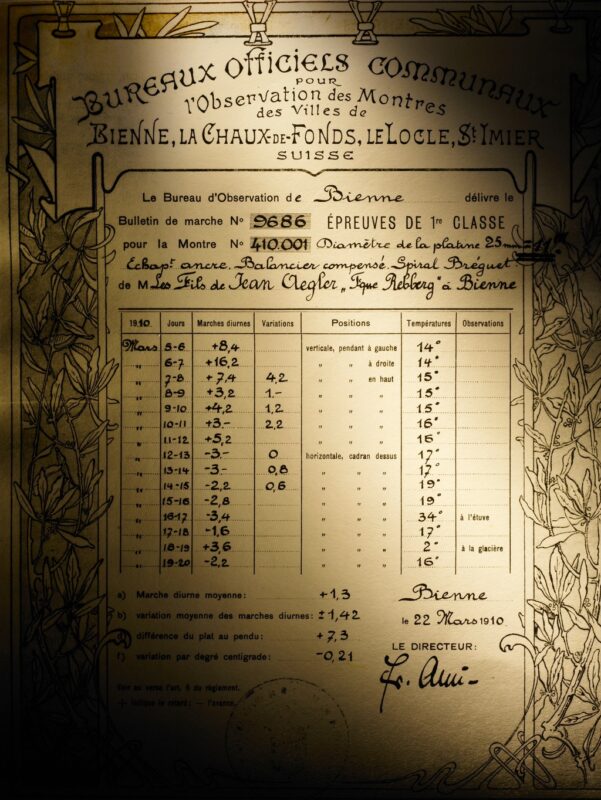 BUREAUX OFFICIELS COMMUNAUX
POUR
l'Observation des Montres
des Villes de
BIENNE, LA CHAUX-DE-FONDS, LE LOCLE, St IMIER
SUISSE
Le Bureau d'Observation de Bienne délivre le
Bulletin de marche No 9686 ÉPREUVES DE 1re CLASSE
pour la Montre No 410.001 Diamètre de la platine 25 mm = 11'''
Echapt ancre, Balancier compensé, Spiral Bréguet
de M Les Fils de Jean Aegler, „Fque Rebberg" à Bienne
1910. Jours Marches diurnes Variations Positions Températures Observations
Mars 5-6 +8,4 verticale, pendant à gauche 14°
„ 6-7 +16,2 „ „ à droite 14°
„ 7-8 +7,4 4,2 „ „ en haut 15°
„ 8-9 +3,2 1.- „ „ „ 15°
„ 9-10 +4,2 1,2 „ „ „ 15°
„ 10-11 +3.- 2,2 „ „ „ 16°
„ 11-12 +5,2 „ „ „ 16°
„ 12-13 -3.- 0 horizontale, cadran dessus 17°
„ 13-14 -3.- 0,8 „ „ „ 17°
„ 14-15 -2,2 0,6 „ „ „ 19°
„ 15-16 -2,8 „ „ „ 19°
„ 16-17 -3,4 „ „ „ 34° à l'étuve
„ 17-18 -1,6 „ „ „ 17°
„ 18-19 +3,6 „ „ „ 2° à la glacière
„ 19-20 -2,2 „ „ „ 16°
a) Marche diurne moyenne: +1,3
b) variation moyenne des marches diurnes: ±1,42
d) différence du plat au pendu: +7,3
f) variation par degré centigrade: -0,21
Voir au verso l'art. 6 du règlement.
+ indique le retard; — l'avance.
Bienne
le 22 Mars 1910.
LE DIRECTEUR: